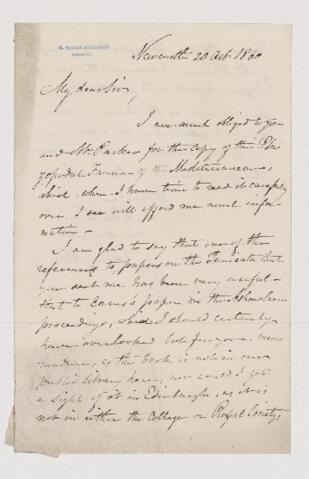 Newcastle 20 Oct 1860
My dear Sir,
I am much obliged to you
and Mr Parker for the copy of the
of the Mediterranean,
which, when I have time to read it carefully
over, I see will afford me much infor-
mation.
I am glad to say that one of the
references to papers on the Tunicata that
you sent me has been very useful -
that to Carus's paper in the Ashmolean
proceedings, which I should certainly
have overlooked but for your memo-
randum, as the book is not in our
public library here, nor could I get
a sight of it in Edinburgh, as it is
not in either the College or Royal Society,